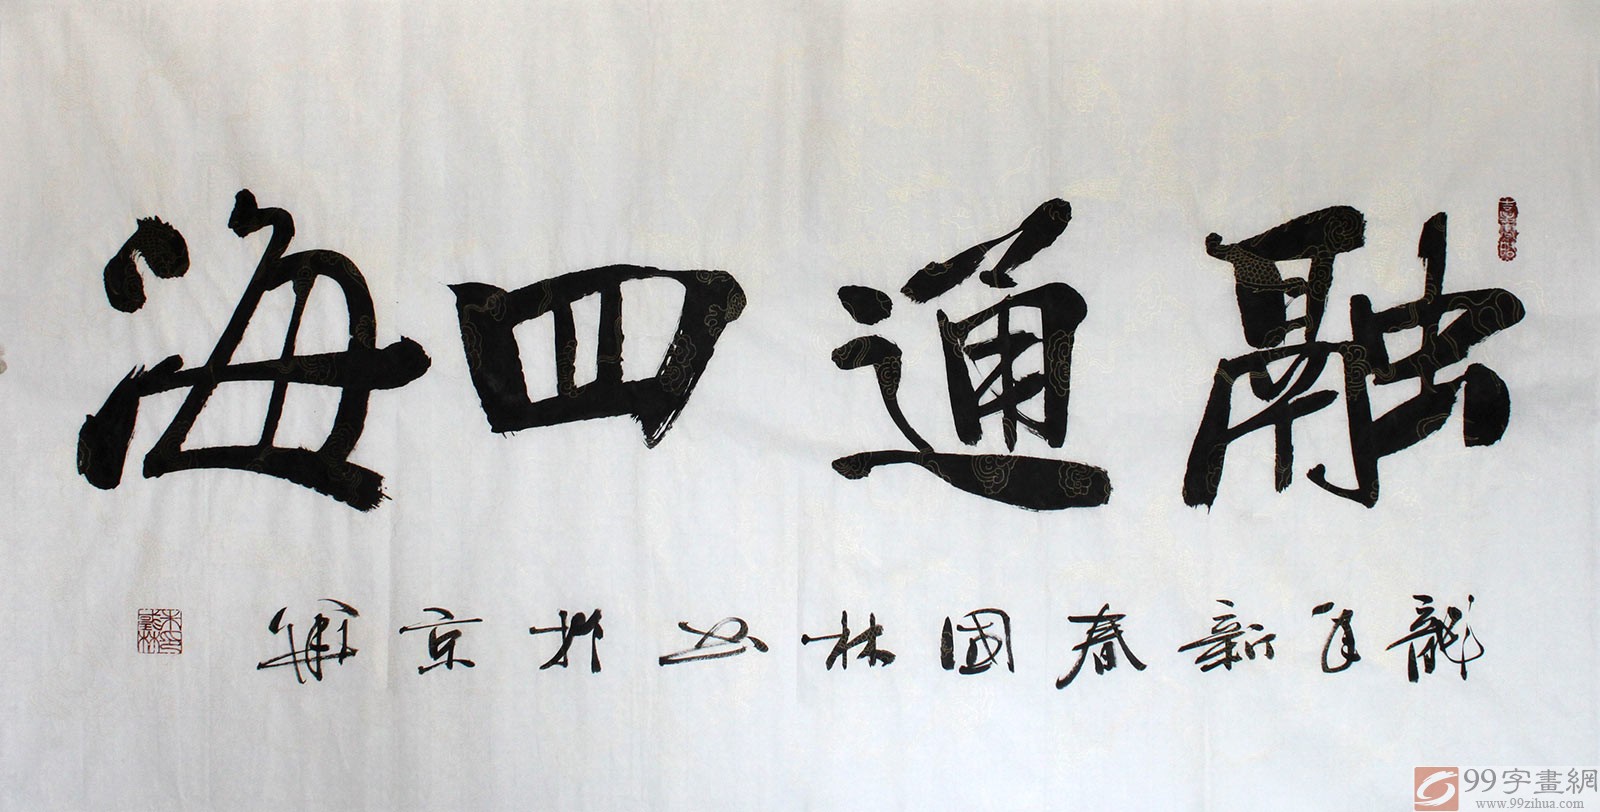 融通四海
龍年新春國林书於京華
99字畫網
www.99zihua.com